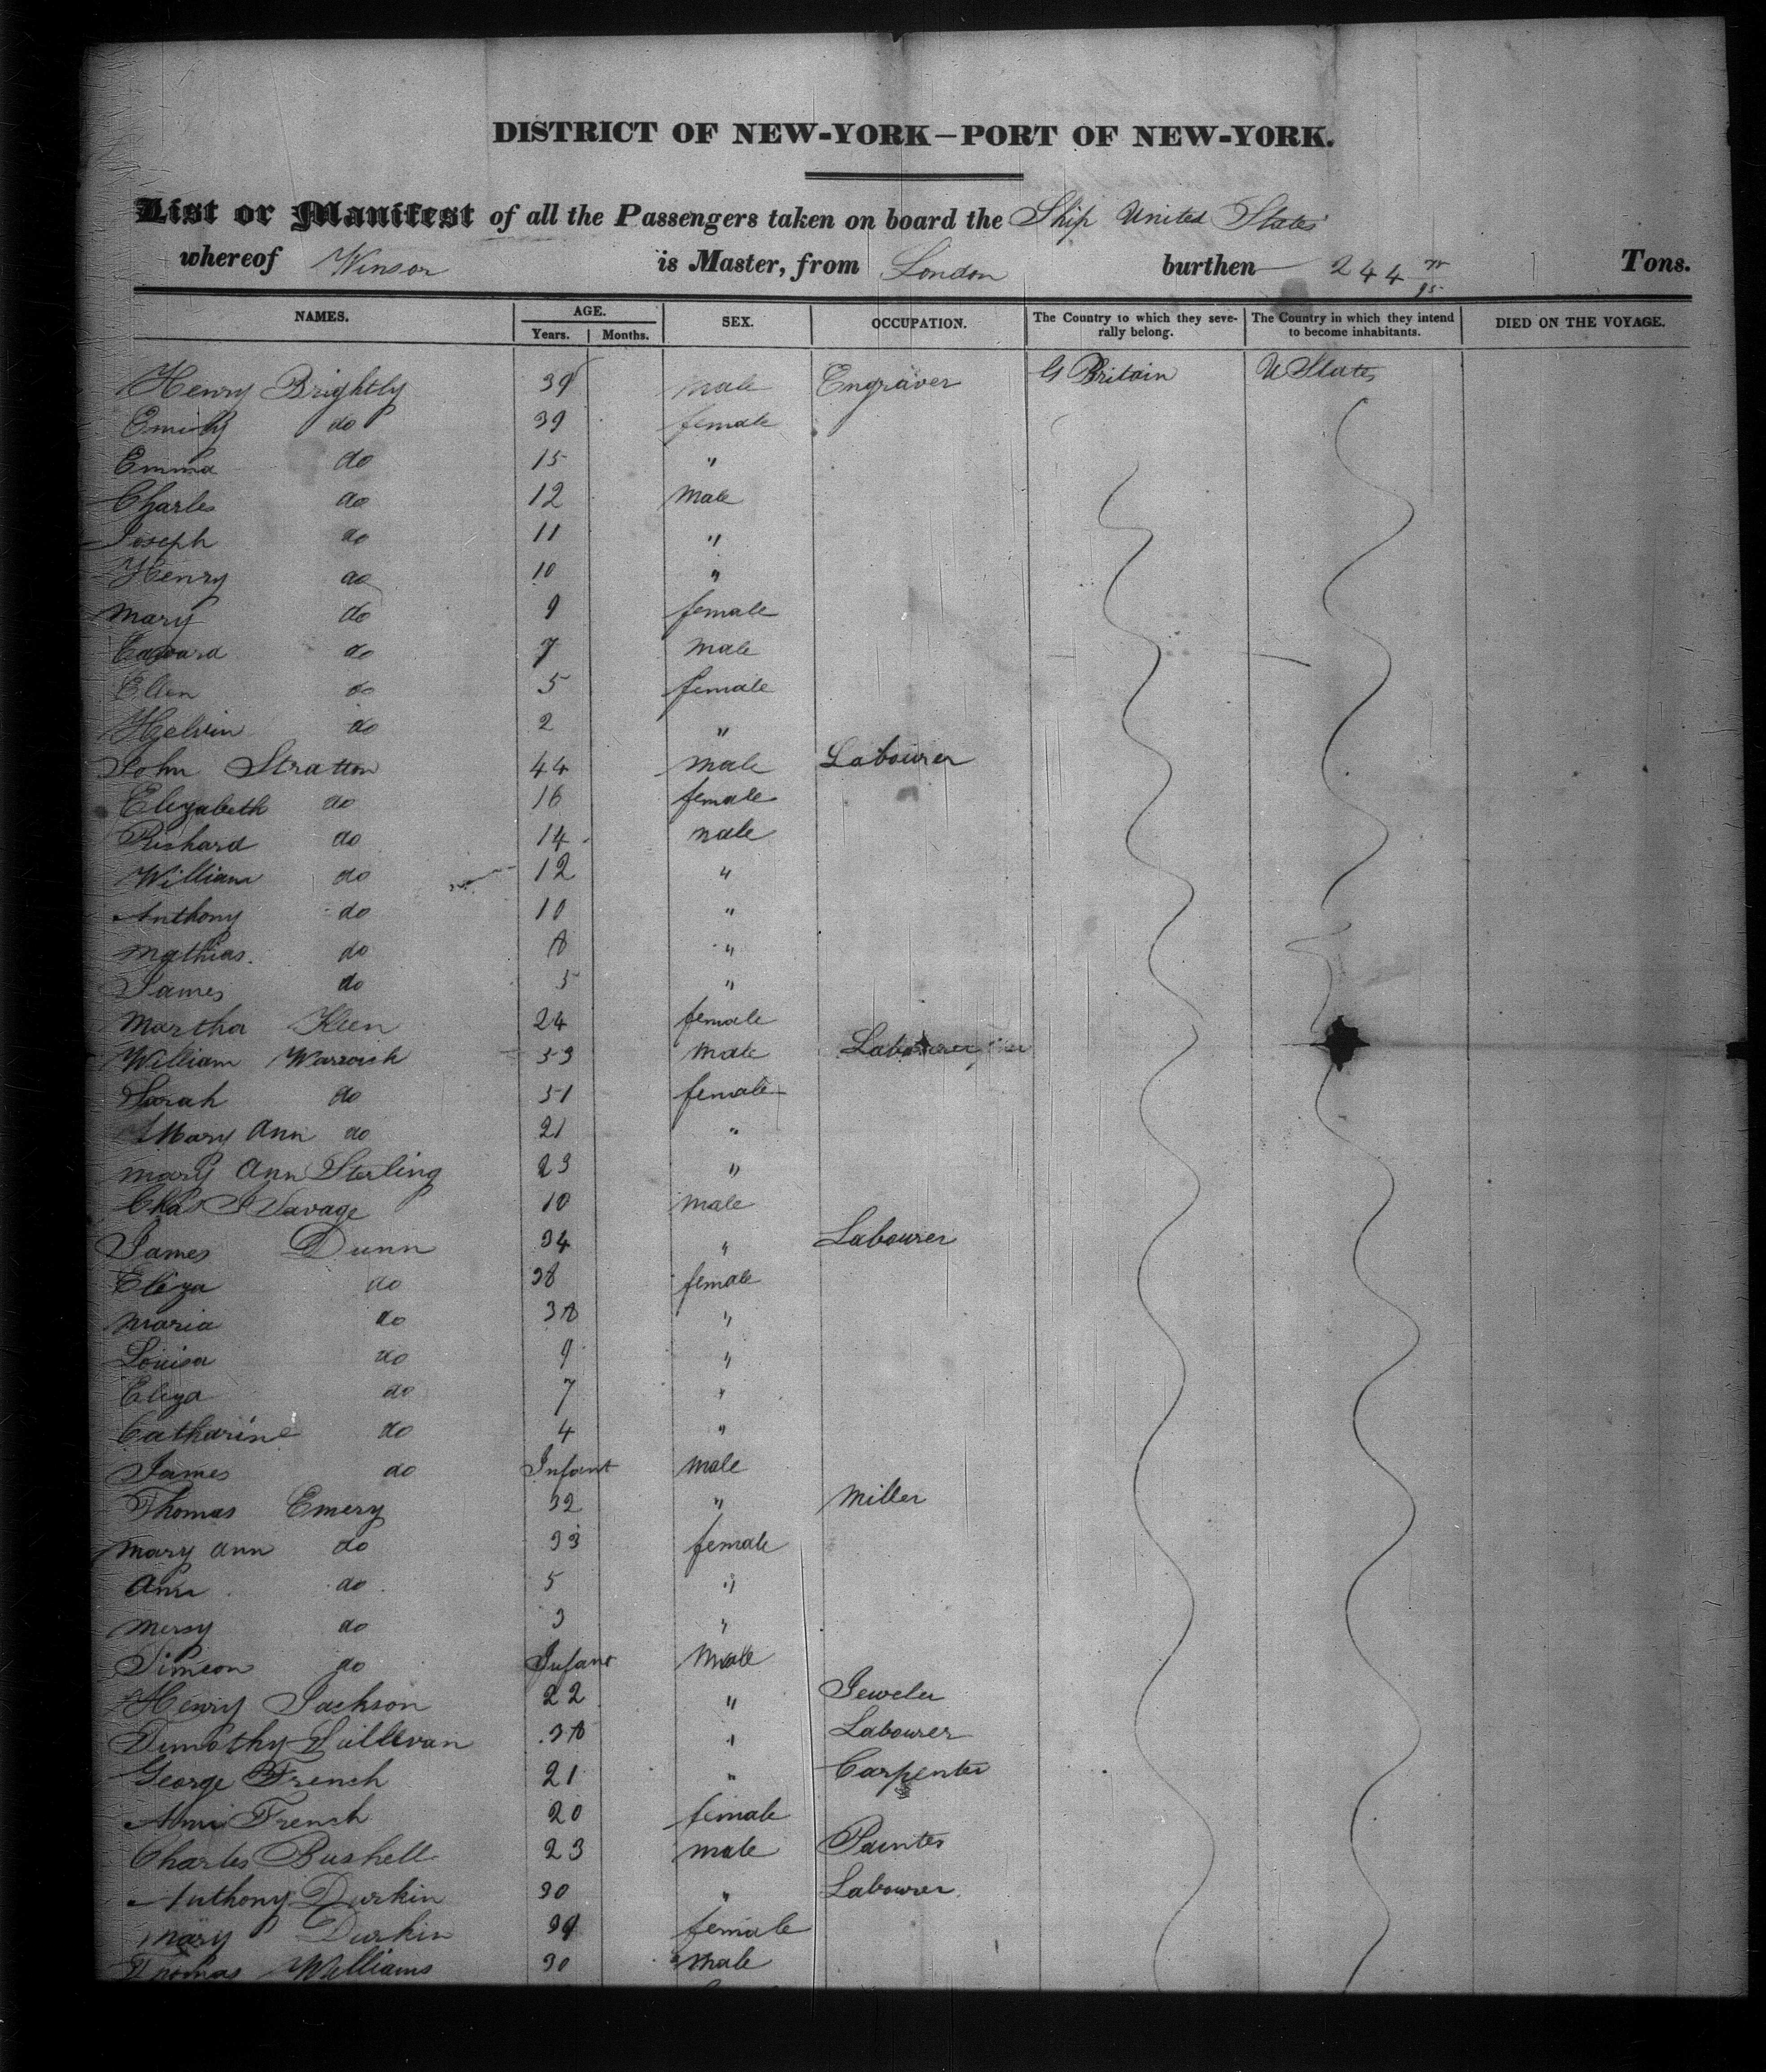 DISTRICT OF NEW-YORK—PORT OF NEW-YORK.
List or Manifest of all the Passengers taken on board the Ship United States
whereof Winsor is Master, from London burthen 244 95 Tons.
NAMES. AGE. SEX. OCCUPATION. The Country to which they severally belong. The Country in which they intend to become inhabitants. DIED ON THE VOYAGE.
Years. Months.
Henry Brightly 39 male Engraver G Britain U States
Emily do 39 female
Emma do 15 "
Charles do 12 male
Joseph do 11 "
Henry do 10 "
Mary do 9 female
Edward do 7 male
Ellen do 5 female
do 2 "
John Stratton 44 male Labourer
Elizabeth do 16 female
Richard do 14 male
William do 12 "
Anthony do 10 "
Mathias do 8 "
James do 5 "
Martha Keen 24 female
William Warwick 53 male Labourer
Sarah do 51 female
Mary Ann do 21 "
Mary Ann Sterling 23 "
Chas Savage 10 male
James Dunn 34 " Labourer
Eliza do 38 female
Maria do 38 "
Louisa do 9 "
Eliza do 7 "
Catharine do 4 "
James do Infant male
Thomas Emery 32 " Miller
Mary Ann do 33 female
Ann do 5 "
Mersy do 3 "
Simeon do Infant Male
Henry Jackson 22 " Jeweler
Dimothy Sullivan 38 " Labourer
George French 21 " Carpenter
Ann French 20 female
Charles Bushell 23 male Painter
Anthony Durkin 30 " Labourer
Mary Durkin 39 female
Thomas Williams 30 male